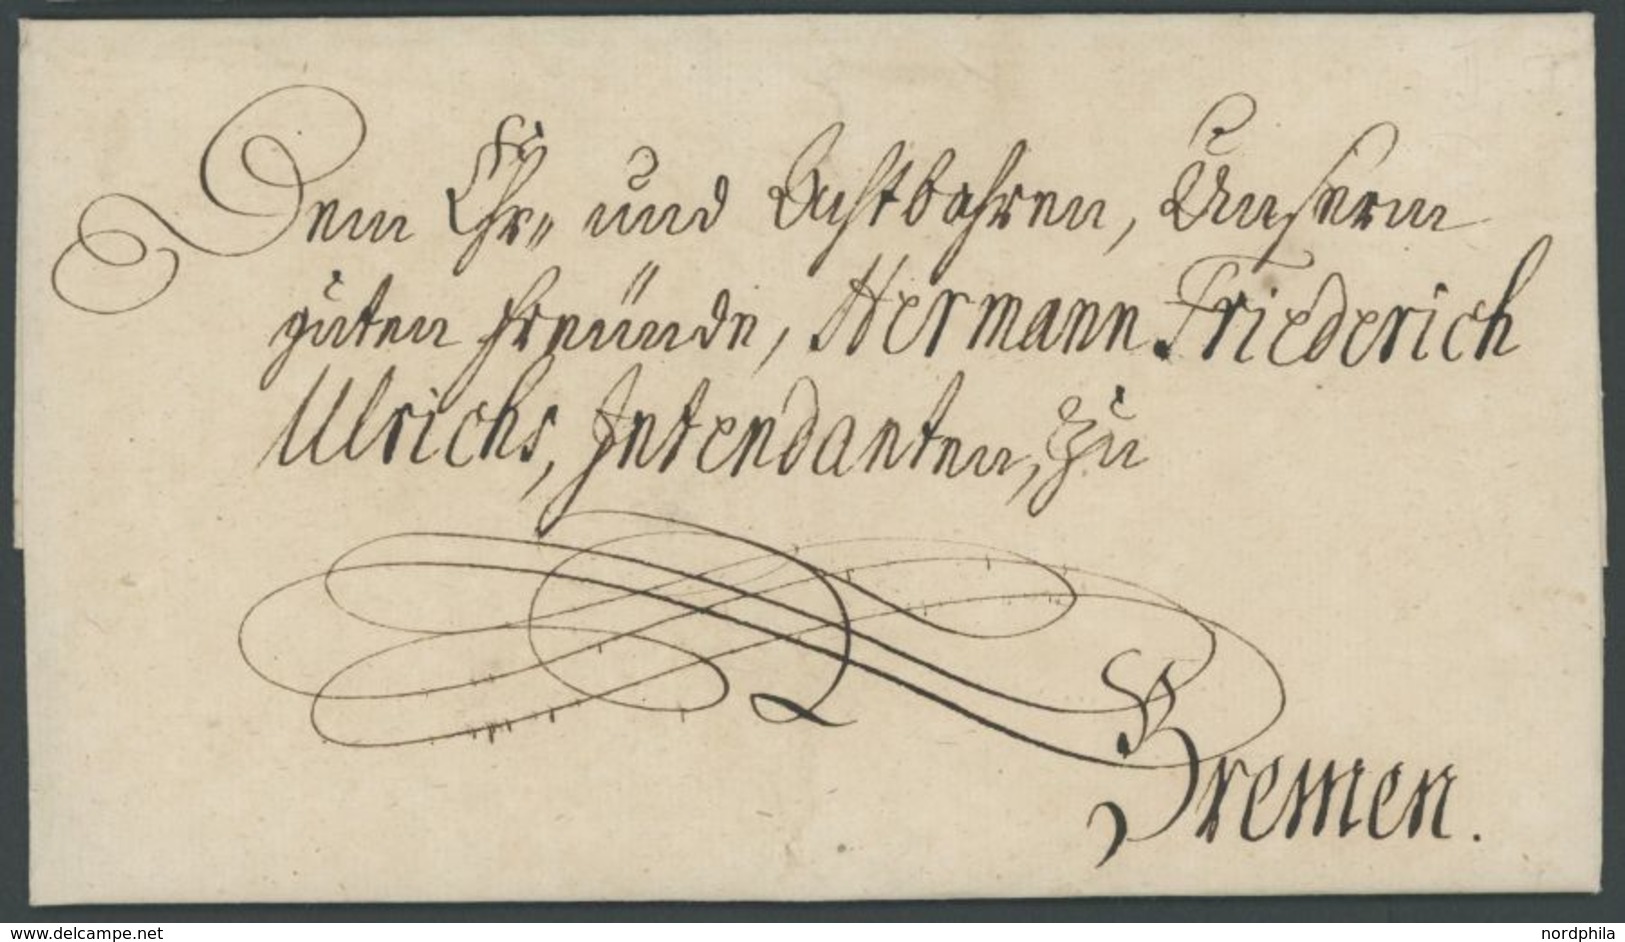 Dem Ehr„ und Achtbahren, Unserm
guten Freünde, Hermann Friederich
Ulrichs, Intendanten, zu
Bremen.
www.delcampe.net
nordphila